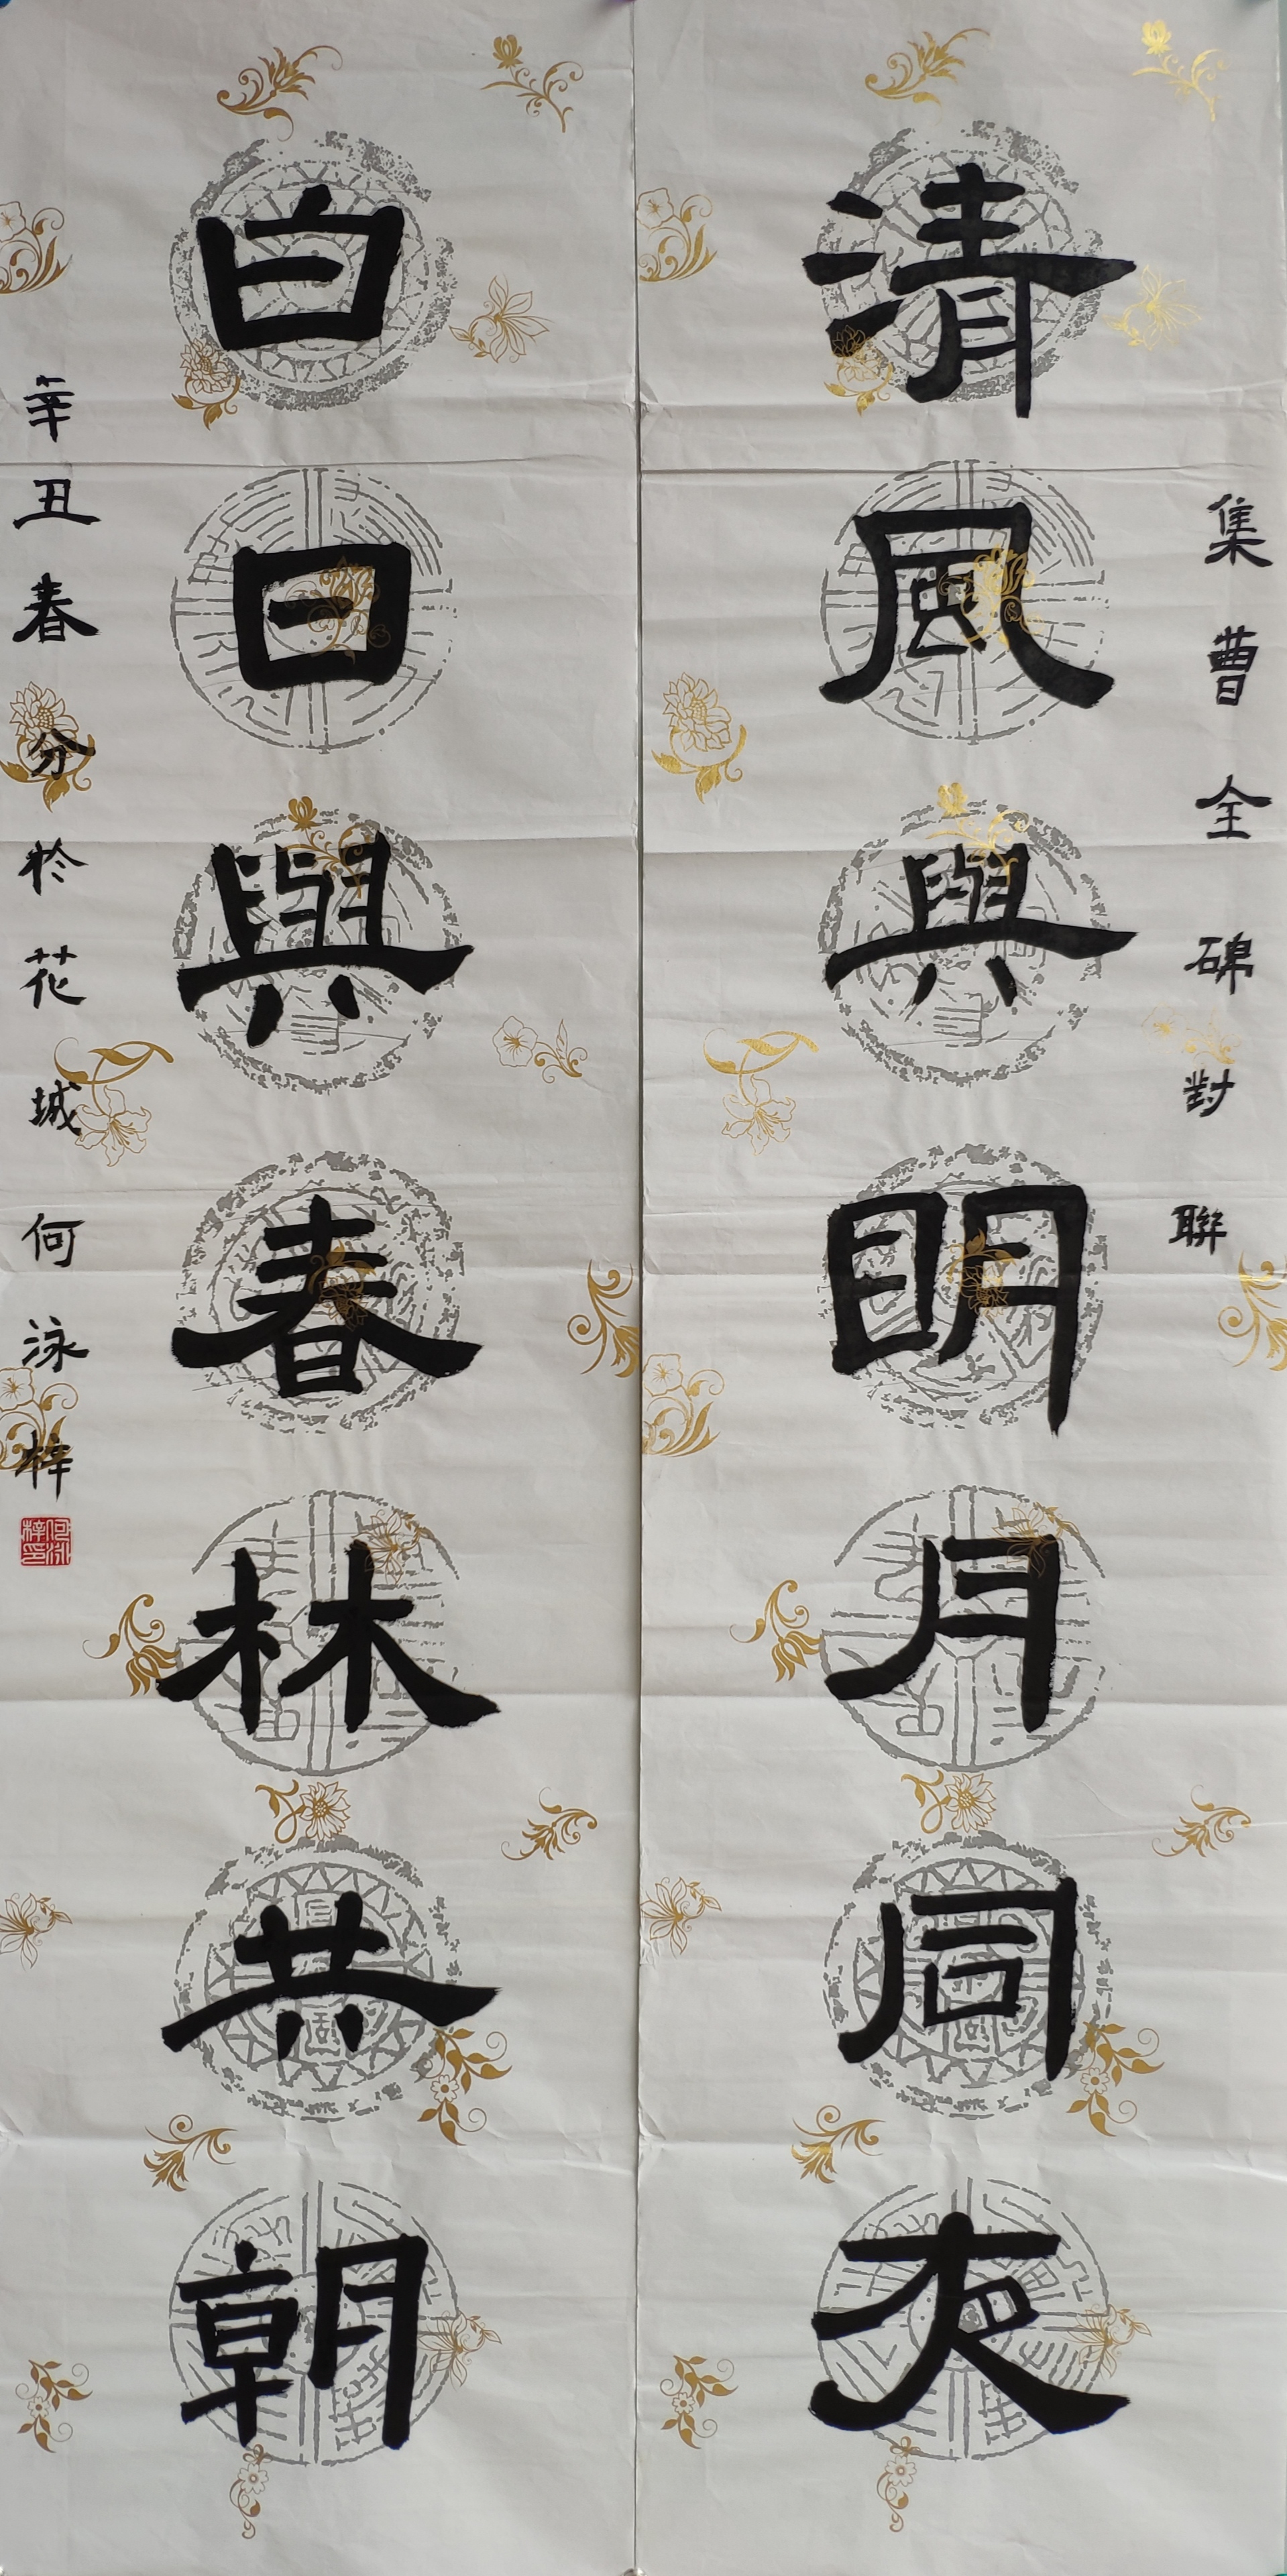 集曹全碑對聯
清風與明月同夜
白日與春林共朝
辛丑春分於花城何泳梓
何泳梓印